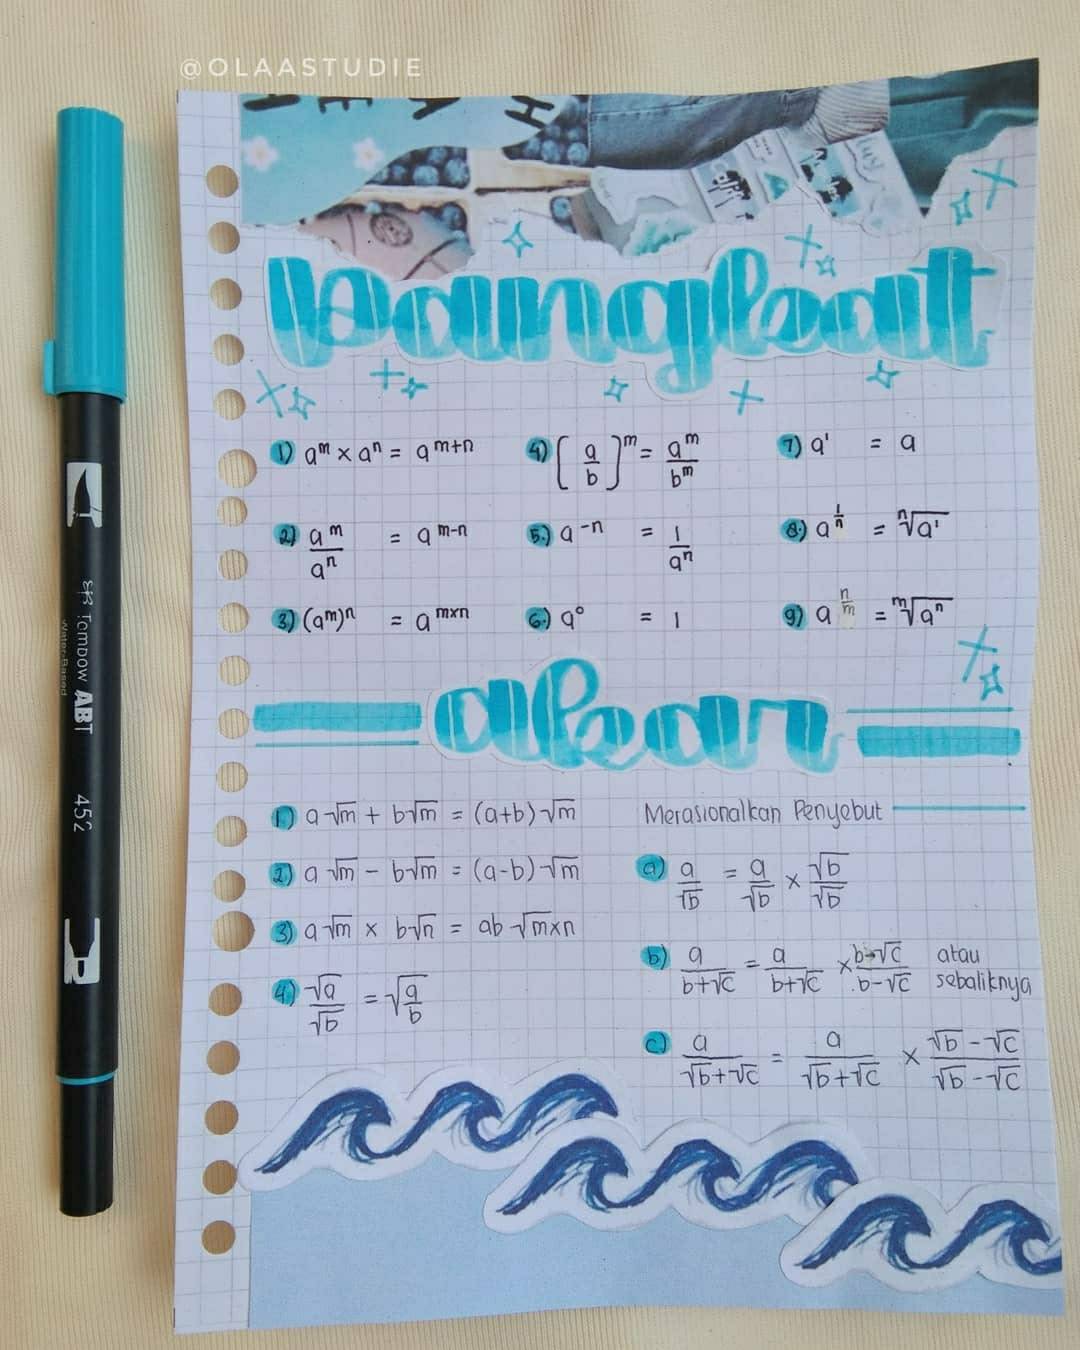 @OLAASTUDIE
Pangkat
1) a^m × a^n = a^(m+n)
2) a^m/a^n = a^(m-n)
3) (a^m)^n = a^(m×n)
4) [a/b]^m = a^m/b^m
5.) a^(-n) = 1/a^n
6.) a^0 = 1
7) a^1 = a
8.) a^(1/n) = ⁿ√a^1
9) a^(n/m) = ᵐ√a^n
akar
1) a√m + b√m = (a+b)√m
2) a√m - b√m = (a-b)√m
3) a√m × b√n = ab√m×n
4) √a/√b = √(a/b)
Merasionalkan Penyebut
a) a/√b = a/√b × √b/√b
b) a/(b+√c) = a/(b+√c) × (b-√c)/(b-√c) atau
sebaliknya
c) a/(√b+√c) = a/(√b+√c) × (√b-√c)/(√b-√c)
Tombow ABT
Water-Based
452